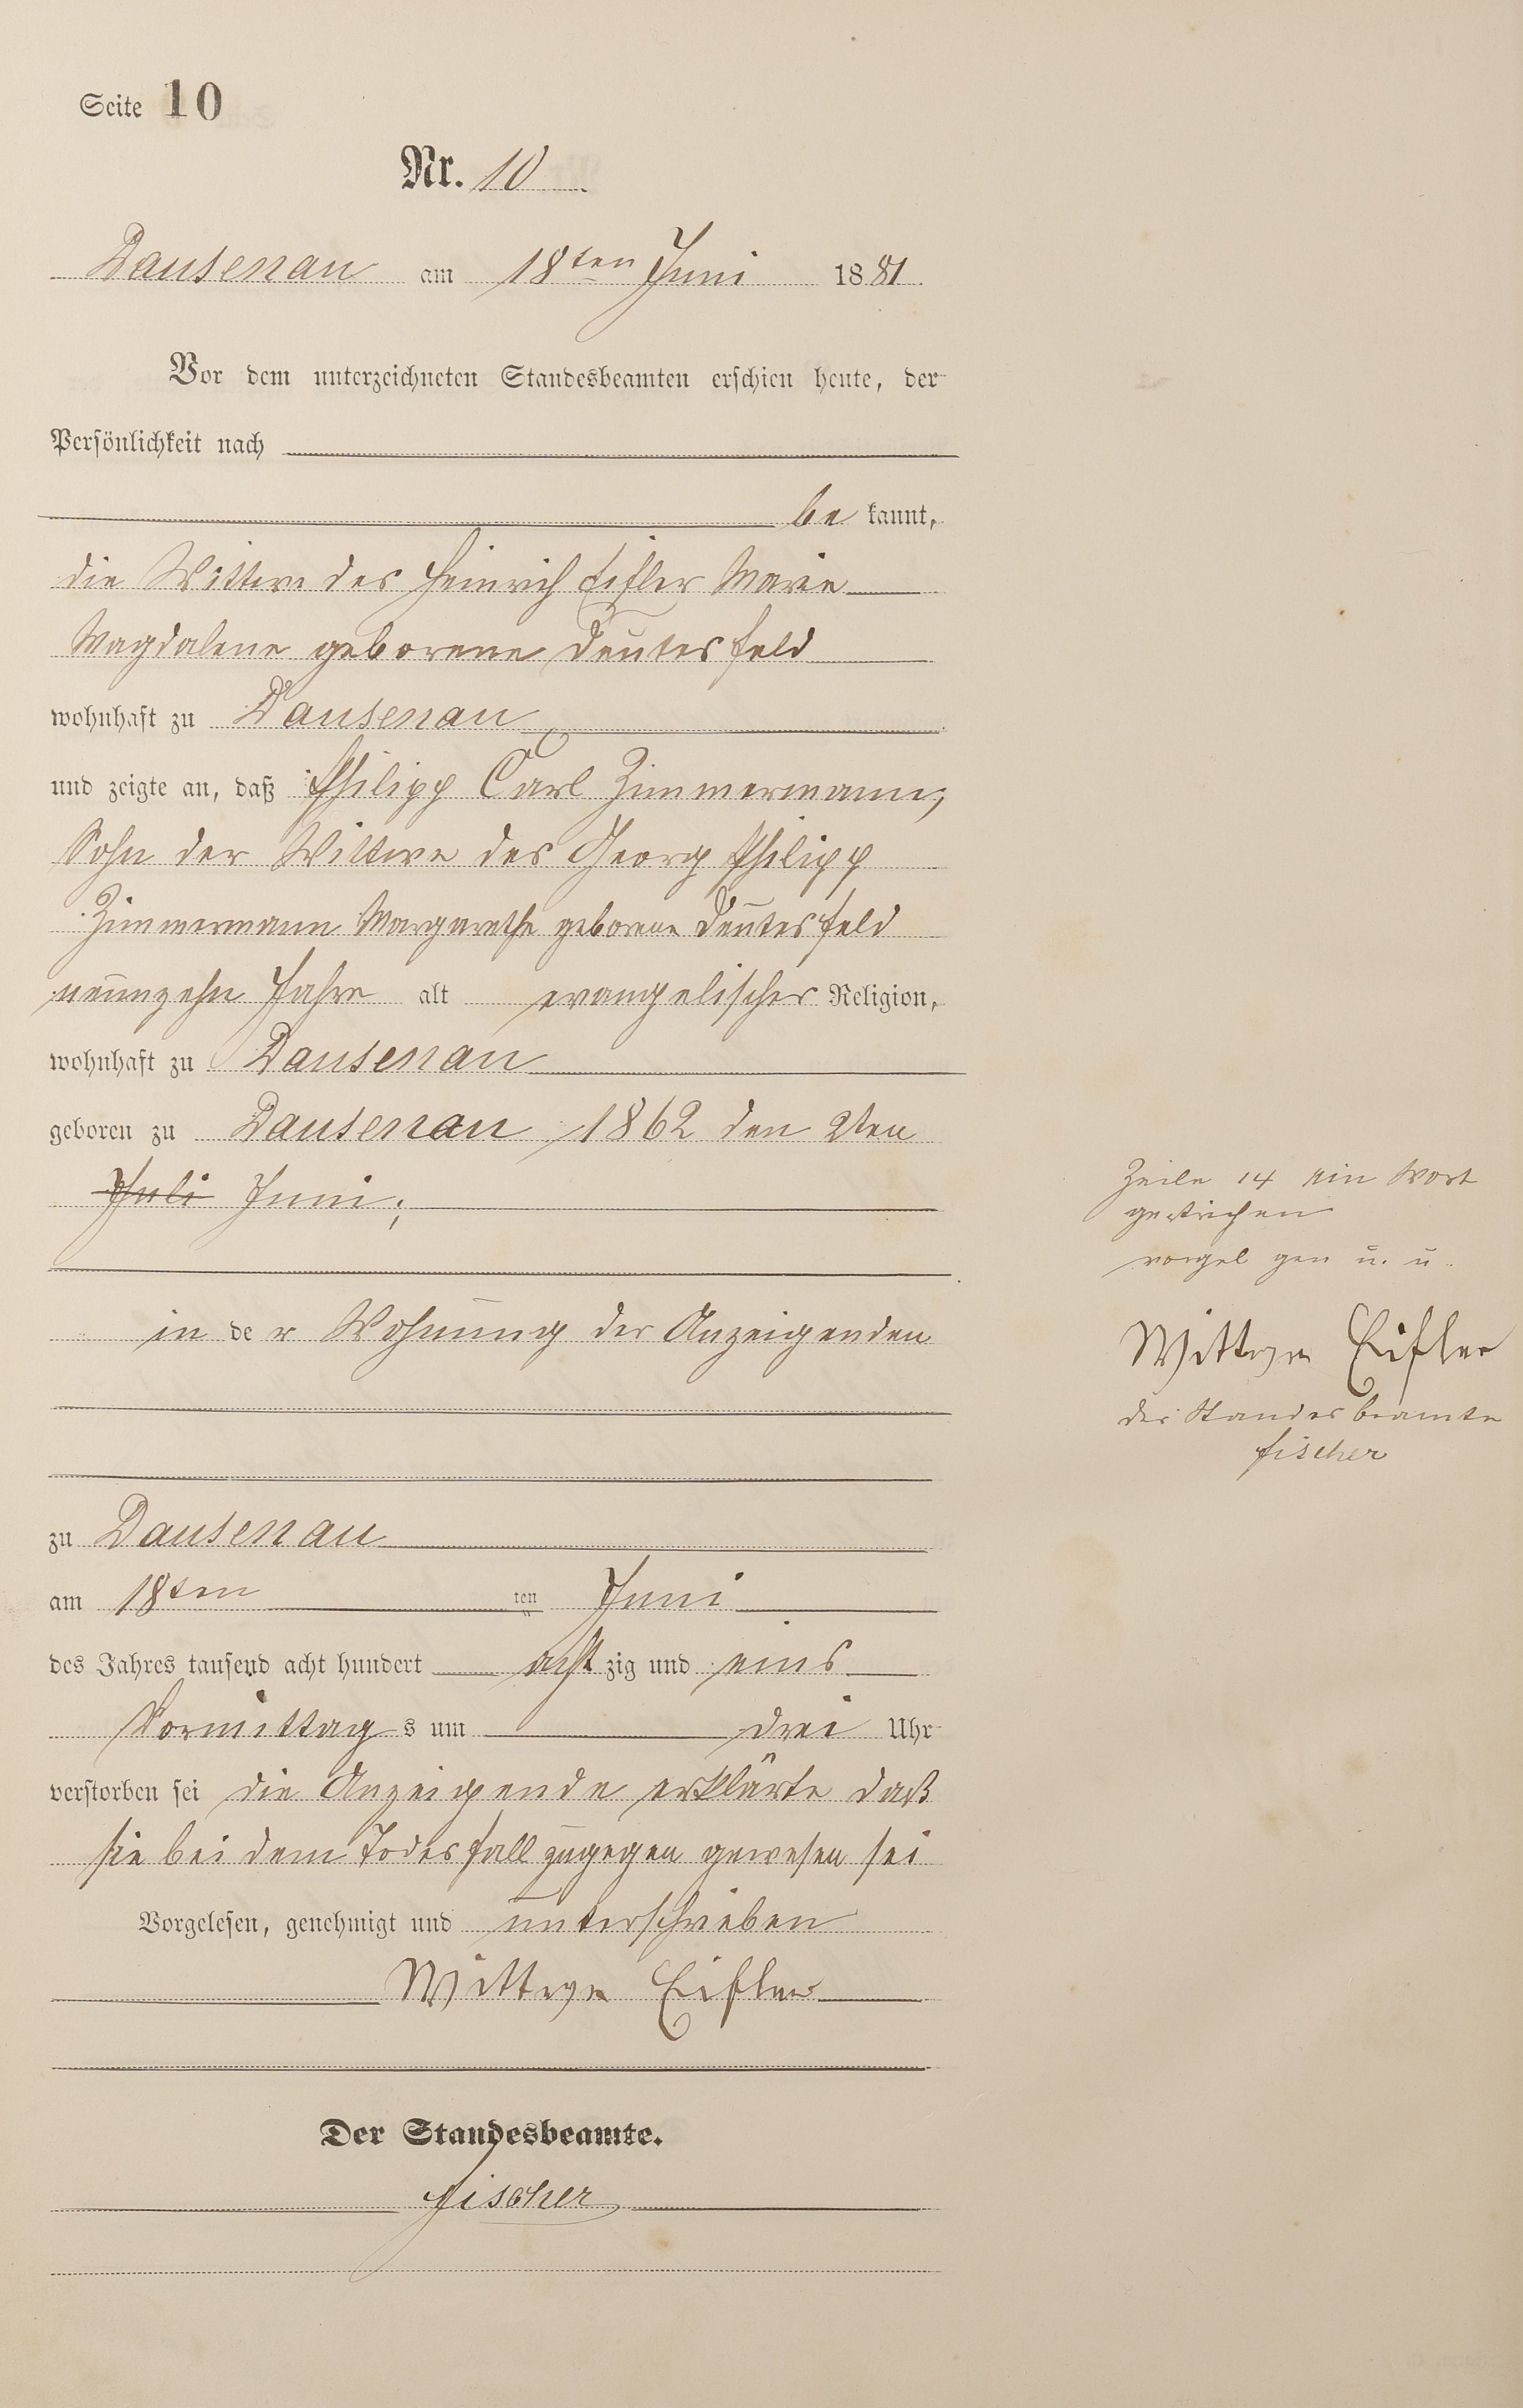 Seite 10
Nr. 10
Dausenau am 18ten Juni 1881.
Vor dem unterzeichneten Standesbeamten erschien heute, der
Persönlichkeit nach
be kannt,
die Wittwe des Heinrich Eifler Marie
Magdalene geborene Deutesfeld
wohnhaft zu Dausenau
und zeigte an, daß Philipp Carl Zimmermann,
Sohn der Wittwe des Georg Philipp
Zimmermann Margarethe geborene Deutesfeld
neunzehn Jahre alt evangelischer Religion,
wohnhaft zu Dausenau
geboren zu Dausenau 1862 den 2ten
Juli Juni;
in de r Wohnung der Anzeigenden
zu Dausenau
am 18ten ten Juni
des Jahres tausend acht hundert acht zig und eins
Vormittag s um drei Uhr
verstorben sei die Anzeigende erklärte daß
sie bei dem Todesfall zugegen gewesen sei
Vorgelesen, genehmigt und unterschrieben
Wittwe Eifler
Der Standesbeamte.
Fischer
Zeile 14 ein Wort
gestrichen
vorgel gen u. u.
Wittwe Eifler
der Standesbeamte
Fischer